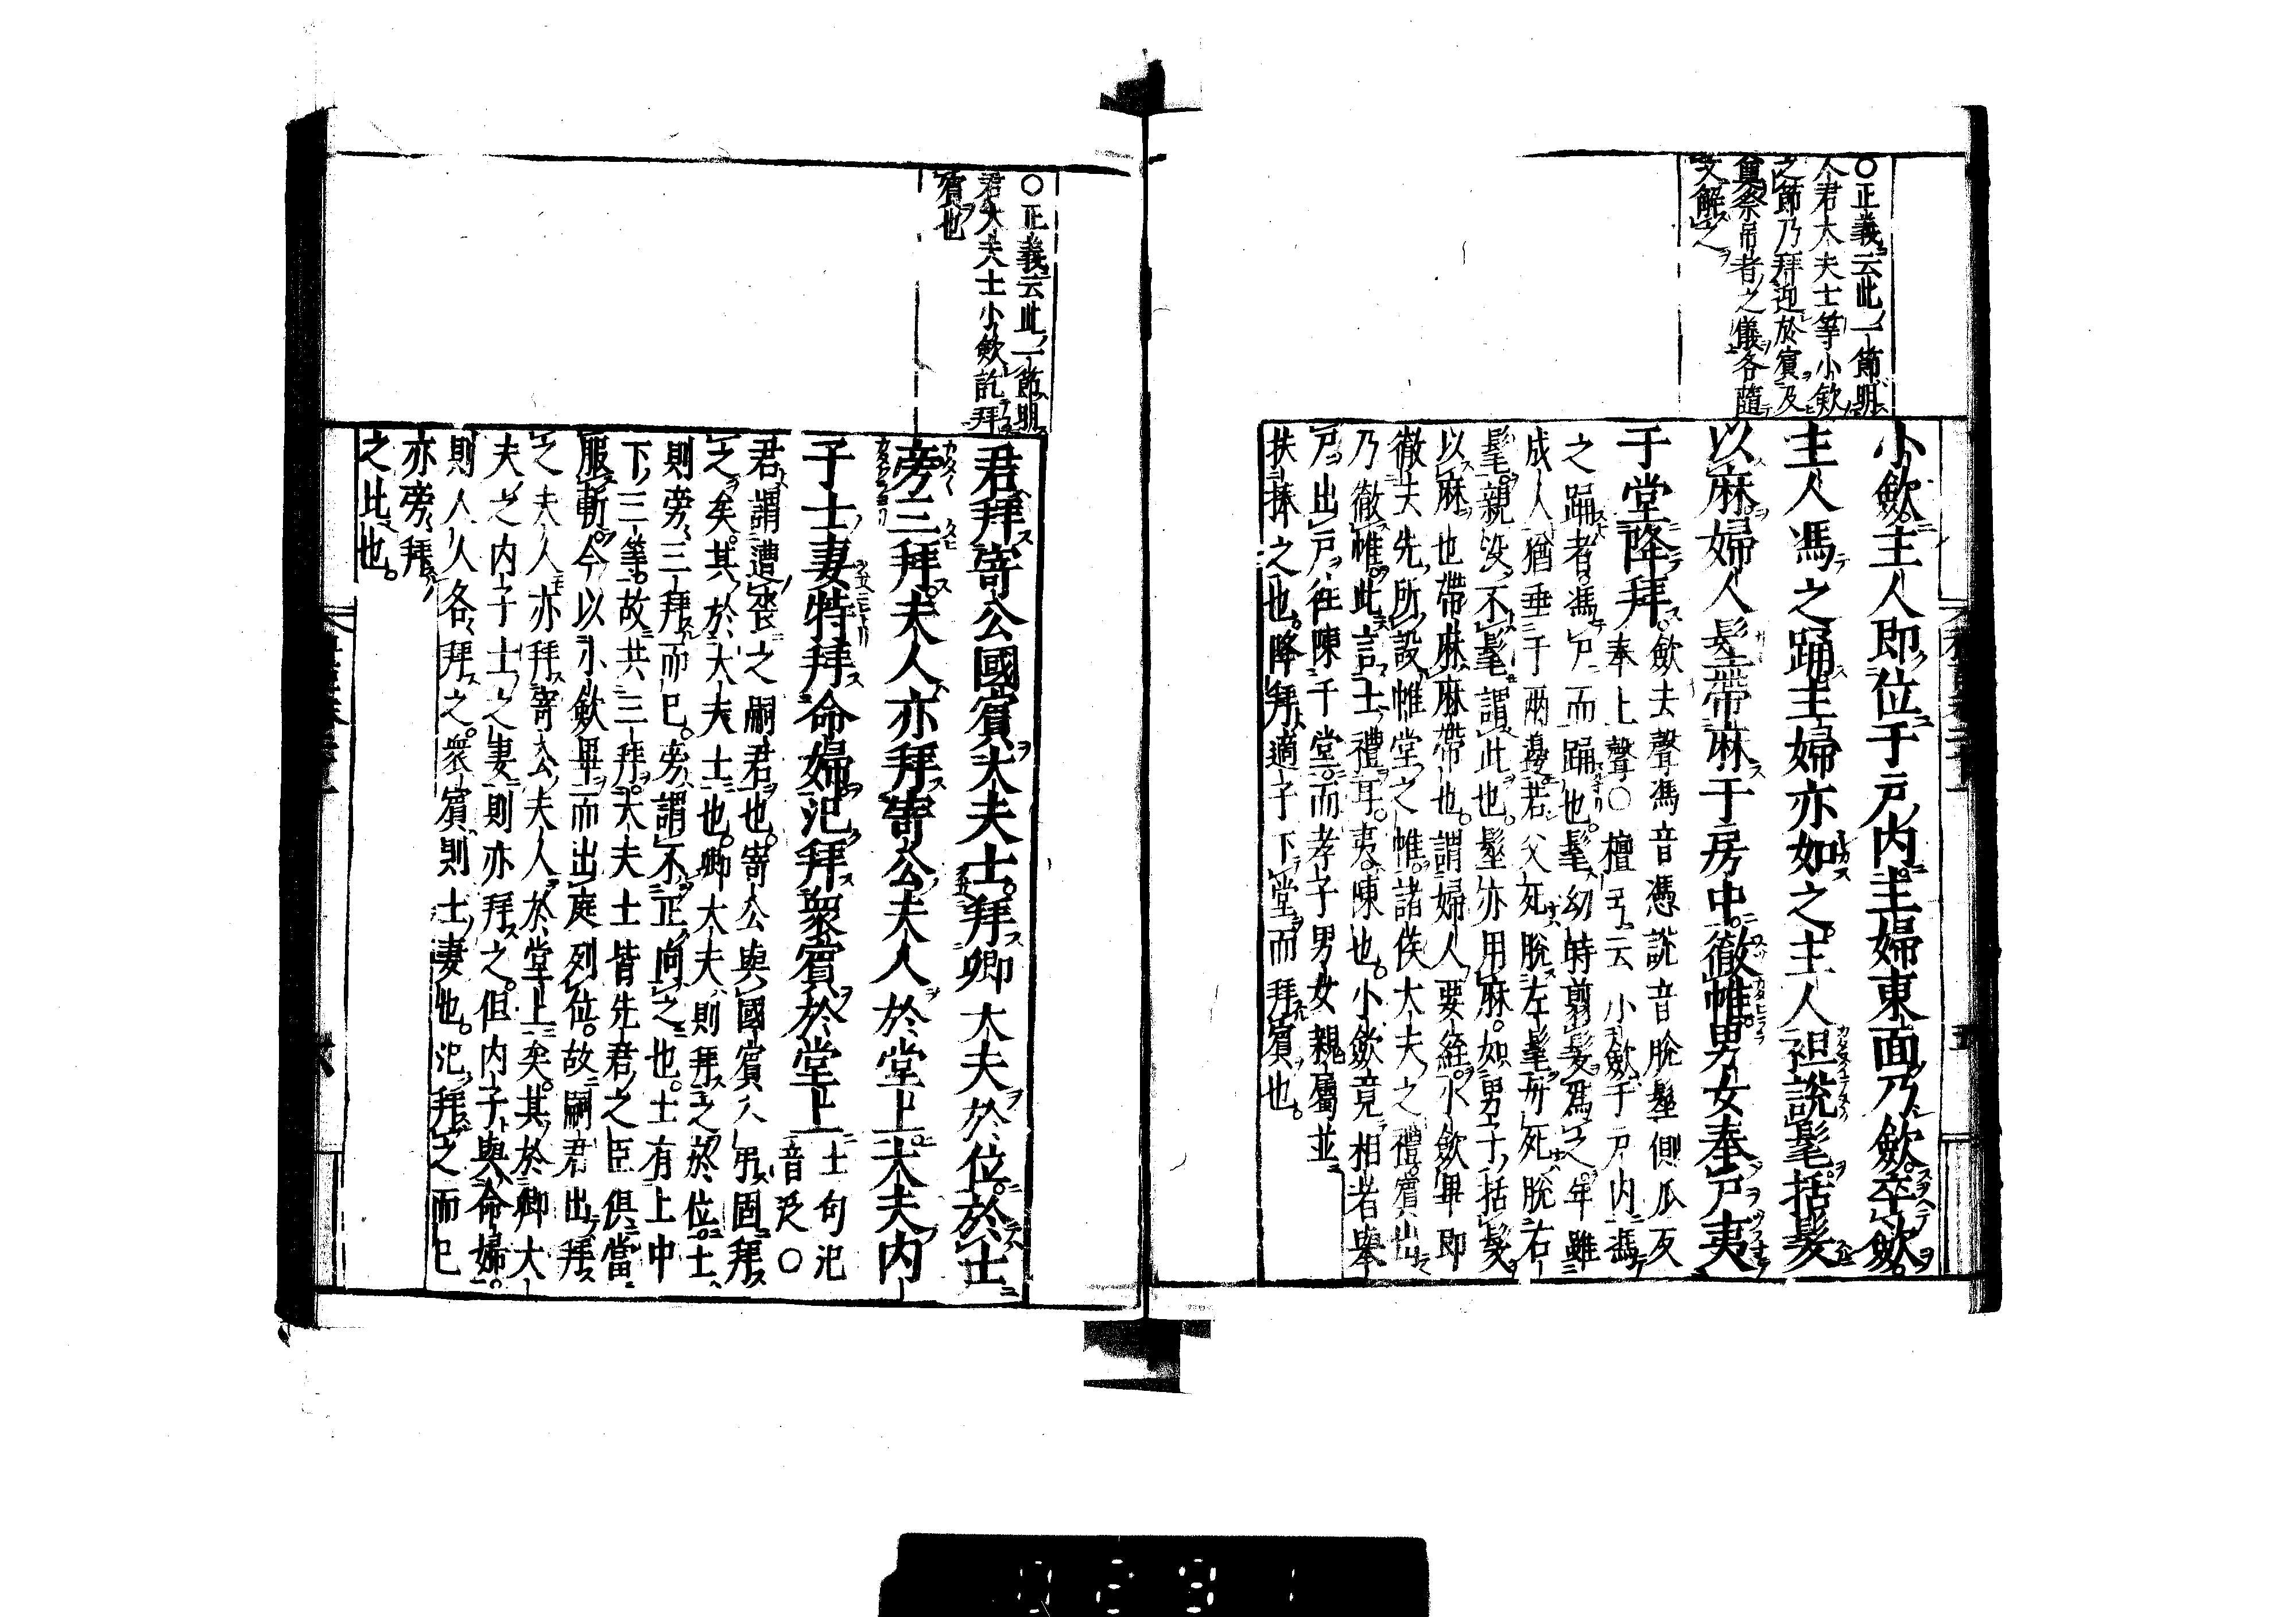 〇正義云此一節明
人君大夫士等小斂
之節乃拜迎於賓及
奠祭吊者之儀各隨
文解之
小斂主人即位于戶內主婦東面乃斂卒斂
主人馮之踊主婦亦如之主人袒說髦括髮
以麻婦人髽帶麻于房中徹帷男女奉尸夷
于堂降拜
斂去聲馮音憑說音脫髽側瓜反
奉上聲〇檀弓云小斂于戶內馮
之踊者馮尸而踊也髦幼時翦髮爲之年雖
成人猶垂于兩邊若父死脫左髦母死脫右
髦親沒不髦謂此也髽亦用麻如男子括髮
以麻也帶麻麻帶也謂婦人要絰小斂畢即
徹夫先所設帷堂之帷諸侯大夫之禮賓出
乃徹帷此言士禮耳夷陳也小斂竟相者舉
尸出戶往陳于堂而孝子男女親屬並
扶捧之也降拜適子下堂而拜賓也
五
〇正義云此一節明
君大夫士小斂訖拜
賓也
君拜寄公國賓大夫士拜卿大夫於位於士
旁三拜夫人亦拜寄公夫人於堂上大夫內
子士妻特拜命婦氾拜衆賓於堂上
士句氾
音泛〇
君謂遭喪之嗣君也寄公與國賓入吊固拜
之矣其於大夫士也卿大夫則拜之於位士
則旁三拜而已旁謂不正向之也士有上中
下三等故共三拜大夫士皆先君之臣俱當
服斬今以小斂畢而出庭列位故嗣君出拜
之夫人亦拜寄公夫人於堂上矣其於卿大
夫之內子士之妻則亦拜之但內子與命婦
則人人各拜之衆賓則士妻也氾拜之而已
亦旁拜
之此也
六
0291